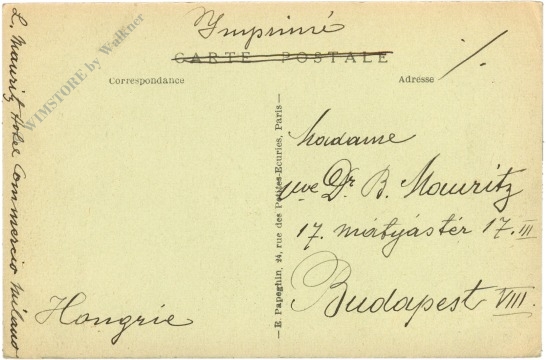 Imprimé
CARTE POSTALE
Correspondance
Adresse
L. Mauritz Hotel Commercio Milano
WIMSTORE by Walkner
Hongrie
— E. Papeghin, 24, rue des Petites-Ecuries, Paris —
Madame
vve Dr. B. Mauritz
17. mátyástér 17. III
Budapest VIII.